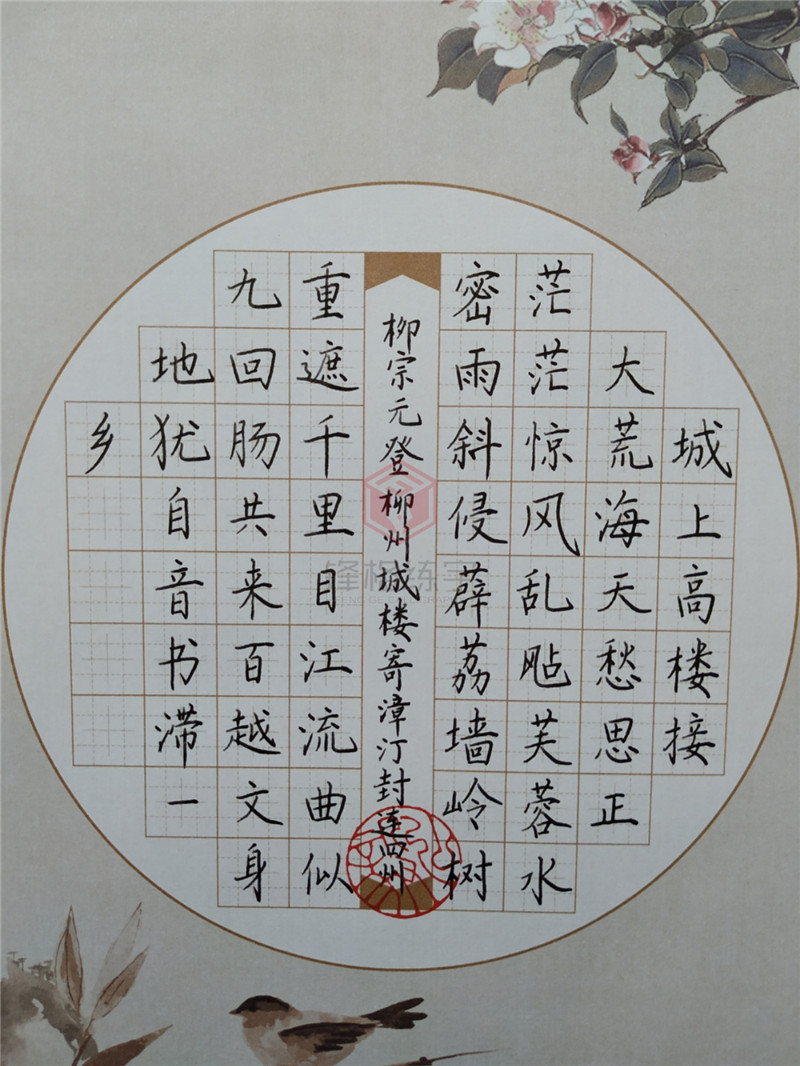 城上高楼接
大荒海天愁思正
茫茫惊风乱飐芙蓉水
密雨斜侵薜荔墙岭树
柳宗元登柳州城楼寄漳汀封连四州
重遮千里目江流曲似
九回肠共来百越文身
地犹自音书滞一
乡